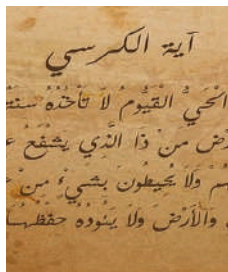 آية الكرسي
الْحَيُّ الْقَيُّومُ لَا تَأْخُذُهُ سِنَةٌ
مَنْ ذَا الَّذِي يَشْفَعُ
وَلَا يُحِيطُونَ بِشَيْءٍ مِنْ
وَالْأَرْضَ وَلَا يَئُودُهُ حِفْظُهُمَا